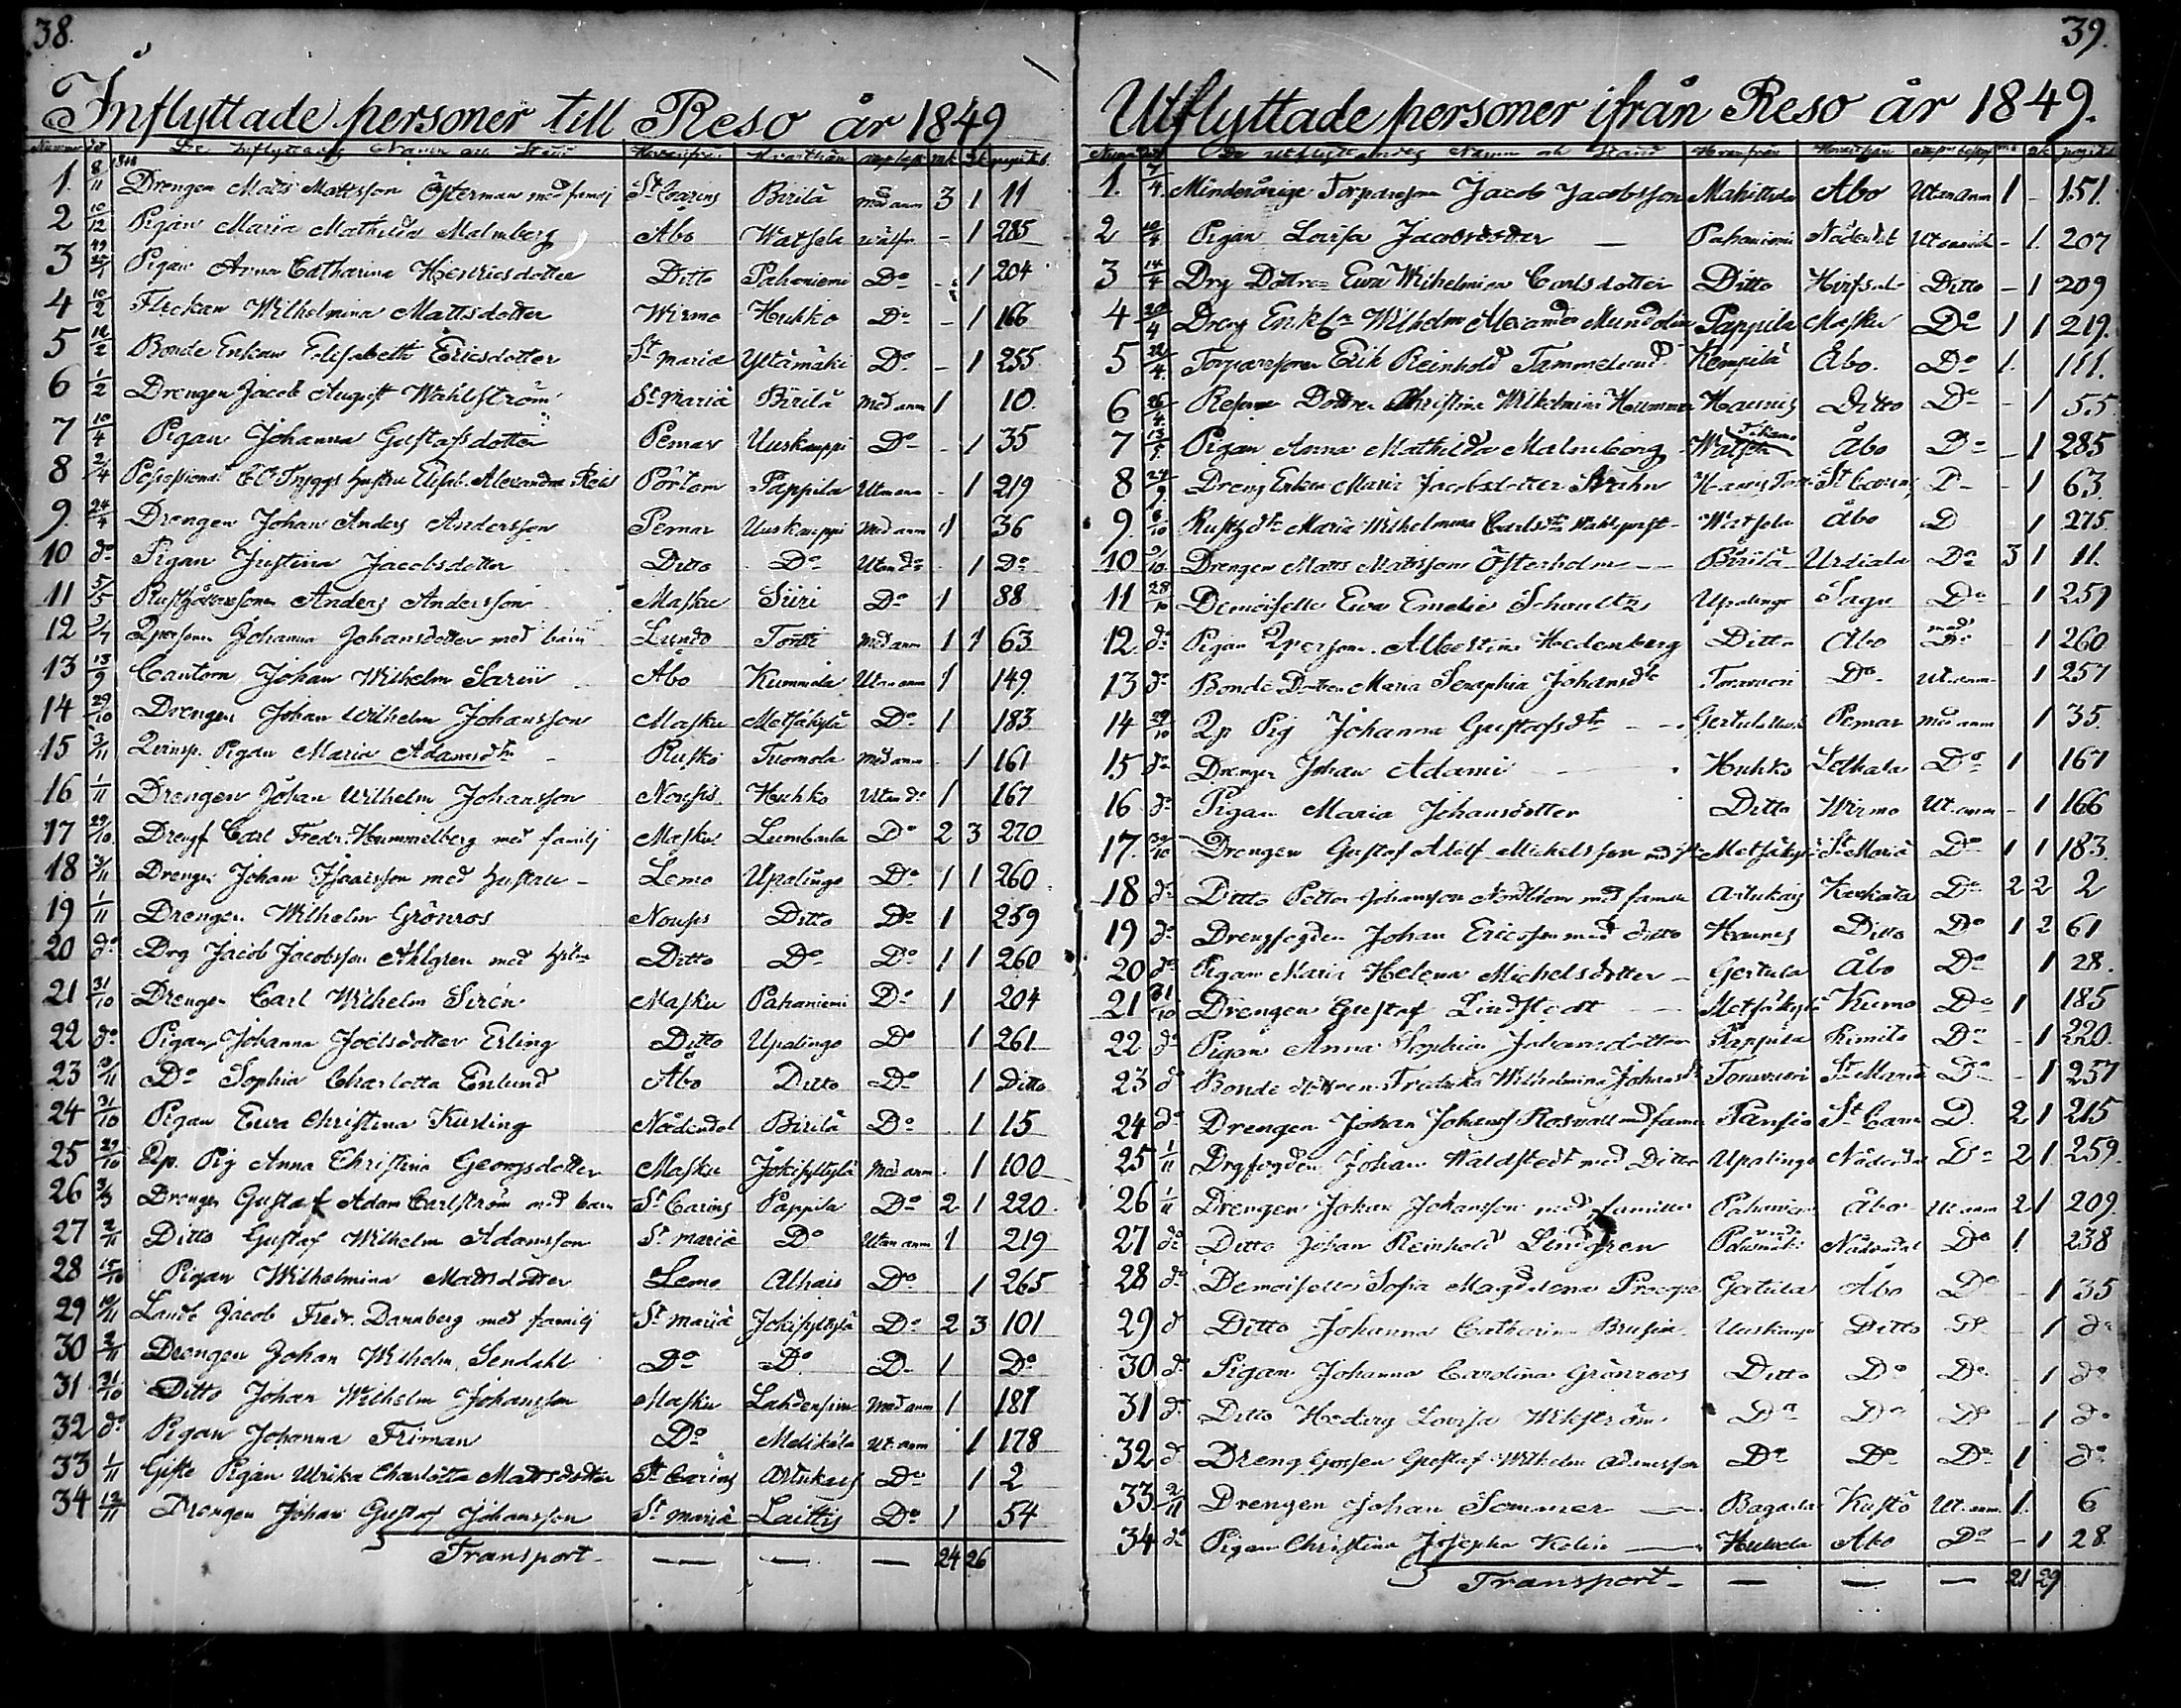 38.
Inflyttade personer till Reso år 1849
De Inflyttandes Namn och Stånd
1848
1. 8/11 Drengen Matts Mattsson Österman med familj St Carins Birilä med anm 3 1 11
2 10/12 Pigan Maria Mathilda Malmberg Åbo Watsela - 1 285
49
3 Pigan Anna Catharina Henricsdotter Ditto Pahaniemi Do - 1 204
4 10/2 Flickan Wilhelmina Mattsdotter Wirmo Huhko Do - 1 166
5 12/2 Bonde Enkan Elisabeth Ericsdotter St Mariæ Yltämäki Do - 1 255
6 1/2 Drengen Jacob August Wahlström St Mariæ Birilä Med anm 1 10.
7 10/4 Pigan Johanna Gustafsdotter Pemar Uuskauppi Do - 1 35
8 2/4 Tryggs hustru Elisab. Alexandra Pörtom Pappila - 1 219
9. 24/4 Drengen Johan Anders Andersson Pemar Uuskauppi Med anm 1 36
10 do Pigan Justina Jacobsdotter Ditto Do Utan do 1 Do
11 5/5 Rusthållaresonen Anders Andersson Masku Siiri Do 1 88
12 Johanna Johansdotter med barn Lundo Tortti Med anm 1 1 63
13 13/9 Cantorn Johan Wilhelm Sarin Åbo Kummela Utan anm 1 149.
14 29/10 Drengen Johan Wilhelm Johansson Masku Metsäkylä Do 1 183.
15 3/11 Pigan Maria Adamsdtr Rusko Tuomola Med anm 1 161
16 1/11 Drengen Johan Wilhelm Johansson Nousis Huhko Utan do 1 167
17 29/10 Drengf Carl Fredr. Hummelberg med familj Masku Lumbarla Do 2 3 270
18 3/11 Drengen Johan Isaacsson med hustru - Lemo Upalingo Do 1 1 260
19 1/11 Drengen Wilhelm Grönros Nousis Ditto Do 1 259
20 do Drg Jacob Jacobsson Ahlgren med hstru Ditto Do Do 1 1 260
21 31/10 Drengen Carl Wilhelm Sirén Masku Pahaniemi Do 1 204
22 do Pigan Johanna Joelsdotter Erling Ditto Upalingo Do 1 261
23 Do Sophia Charlotta Enlund Åbo Ditto Do 1 Ditto
24 31/10 Pigan Ewa Christina Kurling Nådendal Birilä Do 1 15
25 29/10 Qp. Pig Anna Christina Georgsdotter Masku Jokisyltylä Med anm 1 100
26 Drengen Gustaf Adam Carlström med barn St Carins Pappila Do 2 1 220.
27 2/11 Ditto Gustaf Wilhelm Adamsson St Mariæ Do Utan anm 1 219
28 15/10 Pigan Wilhelmina Mattsdotter Lemo Alhais Do 1 265
29 10/11 Landb Jacob Fredr. Dannberg med familj St Mariæ Jokisyltylä Do 2 3 101
30 2/11 Drengen Johan Wilhelm Sendahl Do Do Do 1 Do
31 31/10 Ditto Johan Wilhelm Johansson Masku Med anm 1 181
32 do Pigan Johanna Friman Do Meltikälä Ut. anm 1 178
33 1/11 Gifte Pigan Ulrika Charlotta Mattsdotter St Carins Artukais Do 1 2
34 12/11 Drengen Johan Gustaf Johansson St Mariæ Laittis Do 1 54
Transport - — — — 24 26
39.
Utflyttade personer ifrån Reso år 1849.
De utflyttandes Namn och Stånd
1. 7/4 Minderårige Torparesonen Jacob Jacobsson Mahittula Åbo Utan anm 1 - 151.
2 10/4 Pigan Lovisa Jacobsdotter — Pahaniemi Nådendal - 1 207
3 14/4 Drg Dottren Ewa Wilhelmina Carlsdotter Ditto Ditto - 1 209
4 20/4 Dreng Wilhelm Alexander Mundolin Pappila Masku Do 1 1 219.
5 22/4 Torparesonen Erik Reinhold Tammelund Kempilä Åbo. Do 1. 111.
6 26/4 Dottren Christina Wilhelmina Haunis Ditto Do - 1 55
7 Pigan Anna Mathilda Malmberg Watsela Åbo Do - 1 285
8 24/9 Dreng Enkan Maria Jacobsdotter Strahn St Carins D - 1 63.
9. 6/10 Maria Wilhelmina Carlsdtr Watsela Åbo D 1 275.
10 9/10 Drengen Matts Mattsson Österholm — Birilä Urdiala Do 3 1 11.
11 28/10 Demoiselle Ewa Emelie Schoultz Upalingo Sagu Do - 1 259
12 do Pigan Albertina Hedenberg Ditto Åbo med Do - 1 260
13 do Bonde Dottren Maria Seraphia Johansdtr Do Ut. anm 1 257
14 29/10 Qp Pig Johanna Gustafsdtr - Pemar Med anm 1 35.
15 do Drengen Johan Adami Huhko Do 1 167
16 do Pigan Maria Johansdotter Ditto Wirmo Ut. anm - 1 166
17. 30/10 Drengen Gustaf Adolf Michelsson med Metsäkylä St Mariæ Do 1 1 183.
18 do Ditto Petter Johansson Nordblom med familie Artukais Do 2 2 2
19 do Drengfogden Johan Ericsson med ditto Haunis Ditto Do 1 2 61
20 do Pigan Maria Helena Michelsdotter - Gertula Åbo Do 1 28.
21 31/10 Drengen Gustaf Lindstedt Metsäkylä Kumo Do 1 185
22 do Pigan Anna Sophia Johansdotter Pappila Kimito Do - 1 220.
23 do Bonde dottren Fredrika Wilhelmina Johansdr St Mariæ Do - 1 257
24 do Drengen Johan Johanss Rosvall med familie Pansio St Carin D. 2 1 215
25 1/11 Drgfogden Johan Waldstedt med Ditto Upalingo Nådendal Do 2 1. 259.
26 1/11 Drengen Johan Johansson med familie Pahaniemi Åbo Ut anm 2 1 209.
27 do Ditto Johan Reinhold Lindgren Nådendal Do 1. 238
28 do Demoiselle Sofia Magdalena Procopé Gertula Åbo Do - 1 35
29 do Ditto Johanna Catharina Brusin Uuskauppi Ditto Do - 1 do
30 do Pigan Johanna Carolina Grönroos Ditto Do Do - 1 do
31 do Ditto Hedvig Lovisa Wikström Do Do Do - 1 do
32 do Dreng Gossen Gustaf Wilhelm Adamsson Do Do Do 1 do
33 2/11 Drengen Johan Sommer — Bagarla Kustö Ut. anm. 1. 6
34 do Pigan Christina Josepha Kelin — Åbo Do - 1 28.
Transport - — — — 21 29